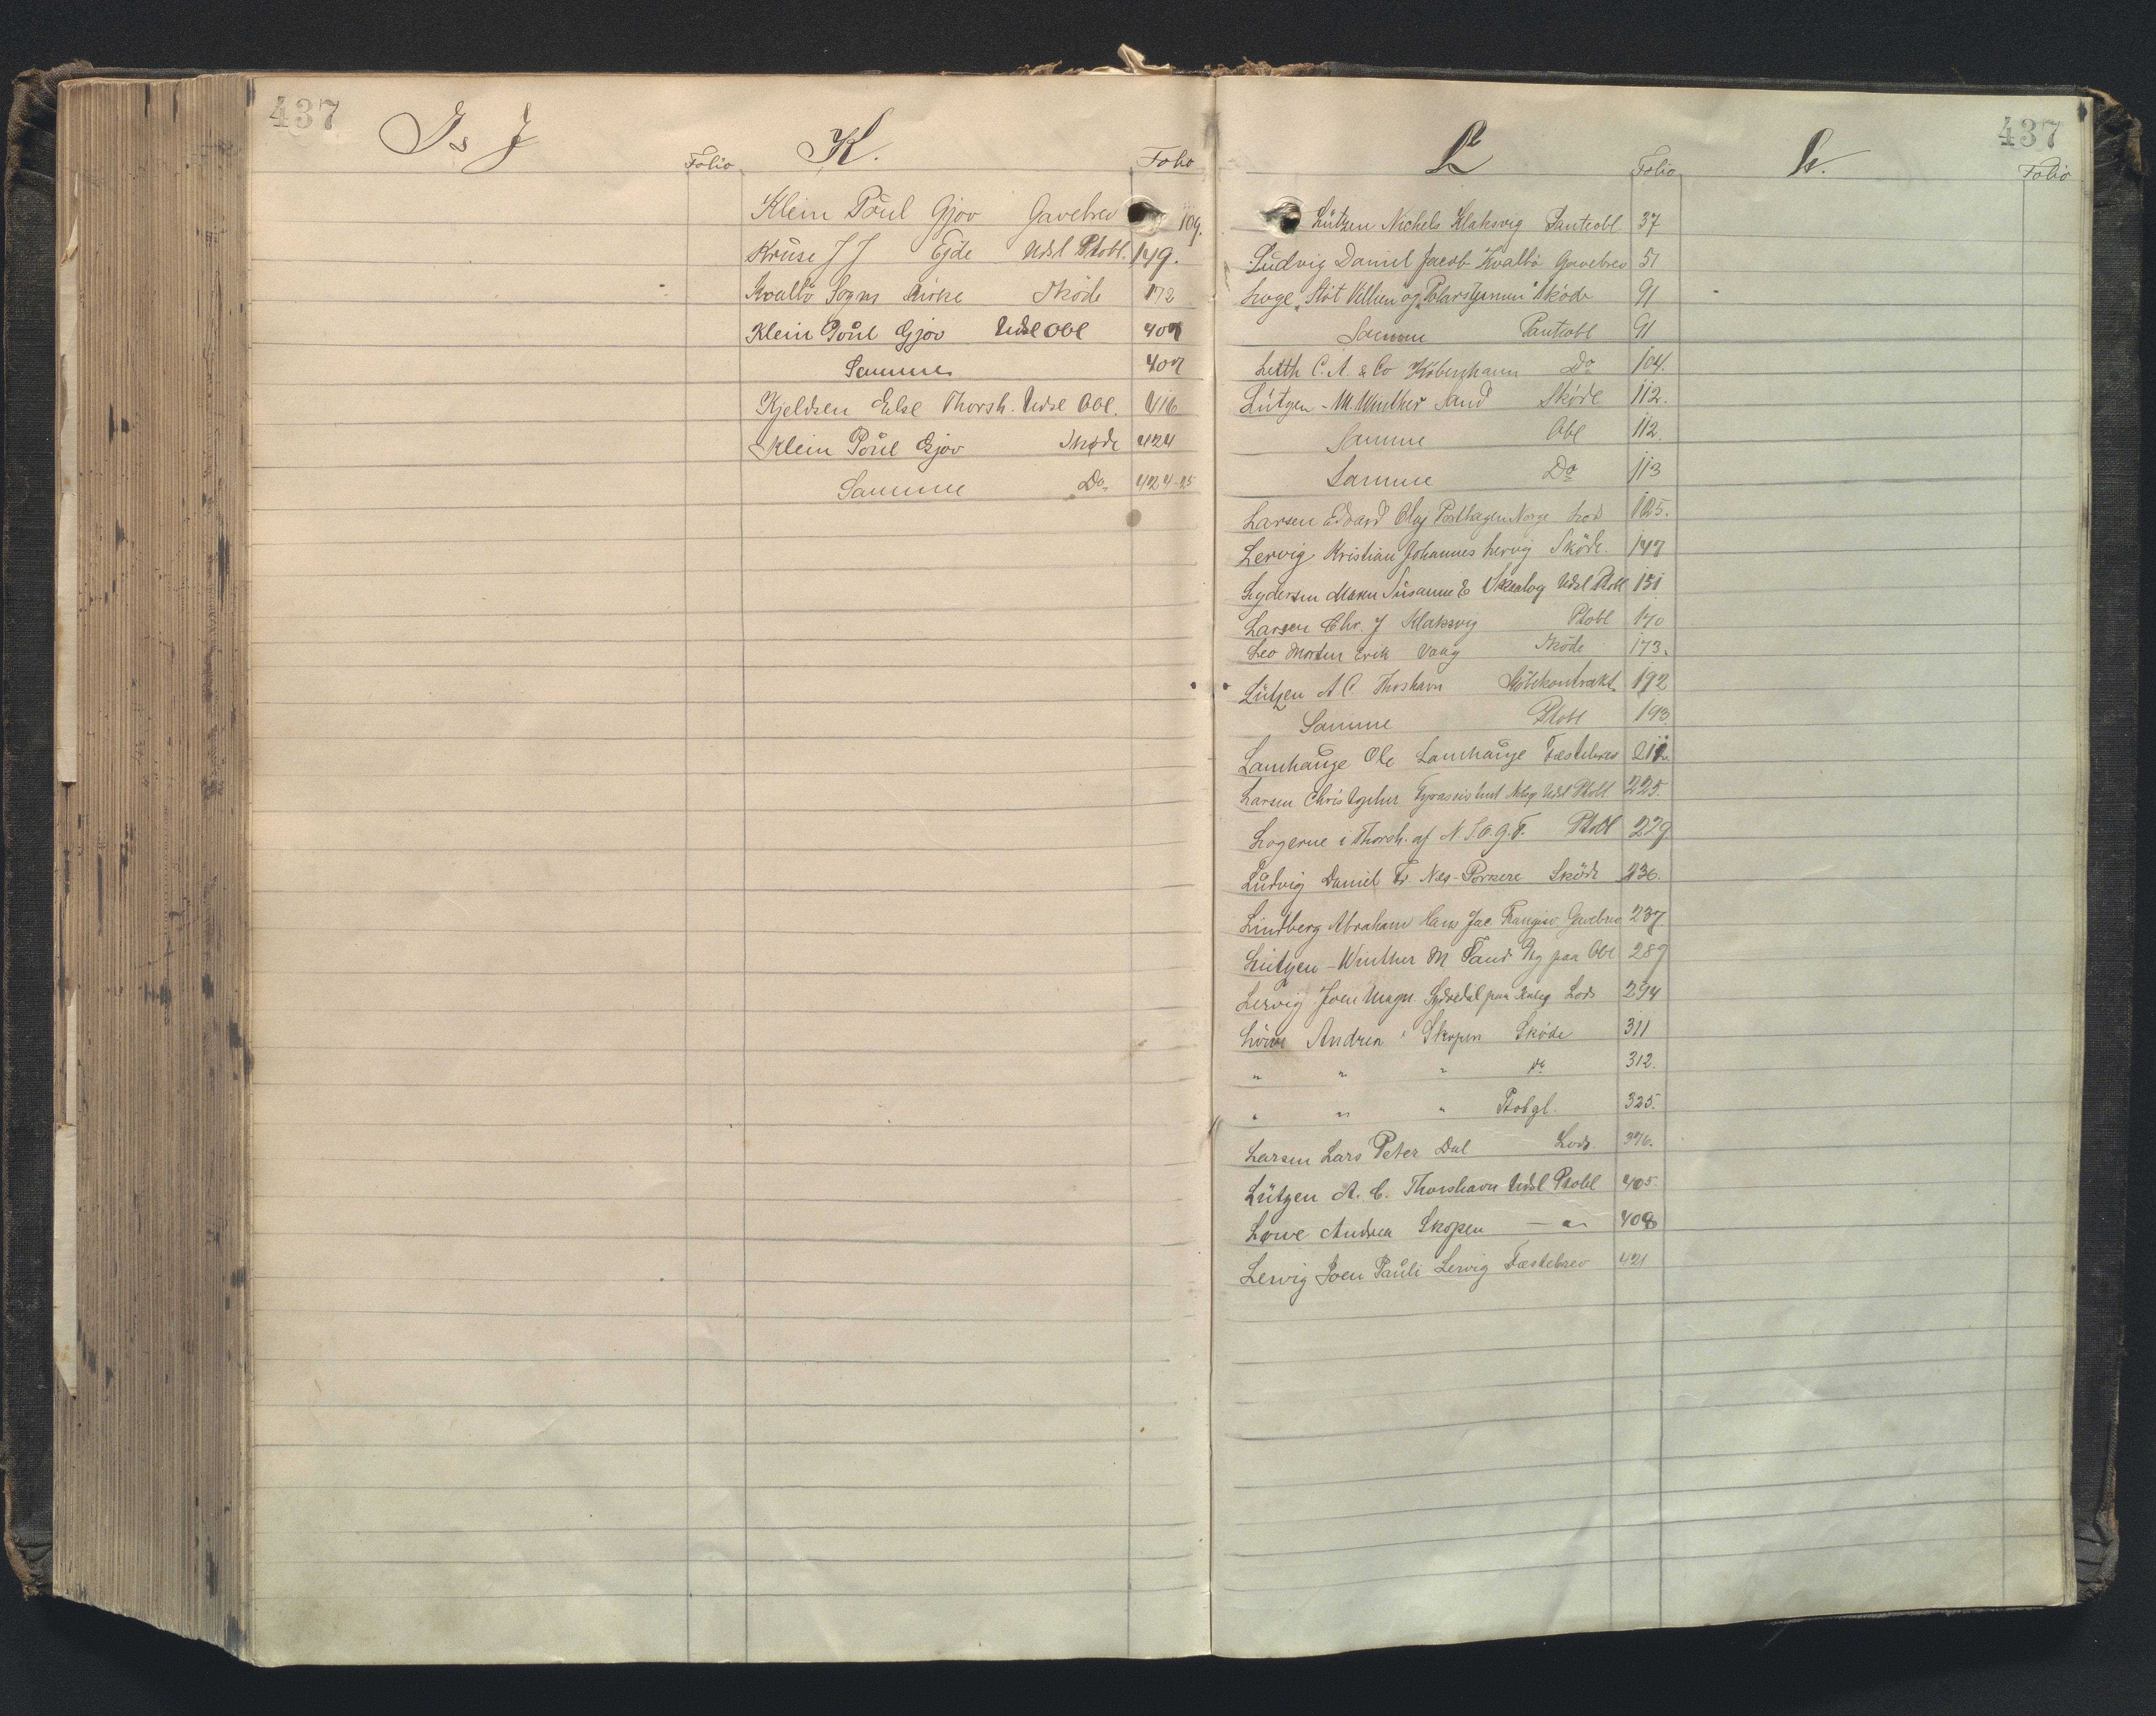 437
Is J
Folio
K.
Folio
Klein Poŭl Gjov Gavebrev 109.
Krŭse J J Ejde Udsl Ptobl. 149.
Kvalbö Sogns Kirke Sköde 172
Klein Poŭl Gjov Udsl Obl 407
Samme 407
Kjeldsen Else Thorsh. Udsl Obl. 416
Klein Poŭl Gjov Skøde 424
Samme Do 424-25
437
L
Folio
L.
Folio
Lützen Nichels Klaksvig Panteobl 37
Lŭdvig Daniel Jacob Kvalbö Gavebrev 51
Loge Sköde 91
Samme Panteobl 91
Leth C. A. & CoKöbenhavn Do 104.
Lützen - M. Winther Sand Sköde 112.
Samme Obl 112.
Samme Do 113
Larsen Edvard Olaj Norge 125.
Lervig Kristian Johannes Lervig Sköde. 147
Lydersen Maren Sŭsanne E Udsl Ptobl 151
Larsen Chr. J Klaksvig Ptobl 170
Leo Morten Erik Vaag Sköde 173.
Lützen A C. Thorshavn Köbekontrakt 192
Samme Ptobl 193.
Lamhaŭge Ole Lamhaŭge Fæstebrev 212
Larsen Christopher Udsl Ptobl 225.
Logerne i Thorsh. af N. I. O. G. T. Ptobl 229
Lŭdvig Daniel Fr. Næs-Porkere Sköde 236.
Lindberg Abraham Hans Jac Gavebrev 237
Lützen - Winther M Sand paa Obl 289
Lervig Joen Magn. paa 294
Löwe Andrea Skopen Sköde 311
" " " do 312.
" " " Ptobgl. 325.
Larsen Lars Peter Dal 376.
Lützen A. C. Thorshavn Udsl Ptobl 405.
Løwe Andrea Skopen — " 408
Lervig Joen Paŭli Lervig Fæstebrev 421